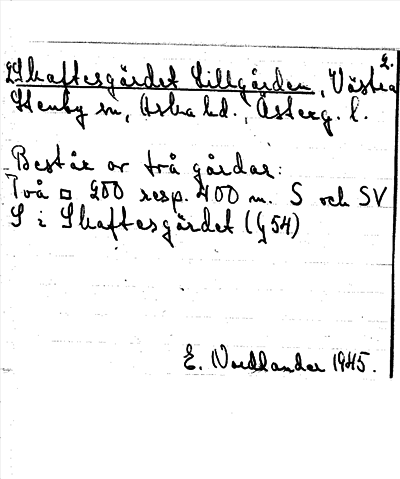 2.
Skaftesgärdet Lillgården, Västra
Stenby sn, Aska hd., Österg. l.
Består av två gårdar:
Två □ 200 resp. 400 m. S och SV
S i Skaftesgärdet (§54)
E. Nordlander 1945.